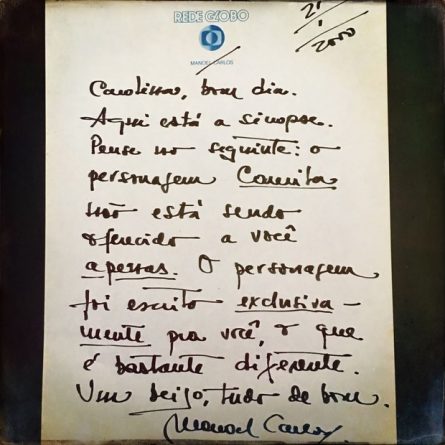 REDE GLOBO
21
1
2000
MANOEL CARLOS
Carolina, bom dia.
Aqui está a sinopse.
Pense no seguinte: o
personagem Camila
não está sendo
oferecido a você
apenas. O personagem
foi escrito exclusiva-
mente pra você, o que
é bastante diferente.
Um beijo, tudo de bom.
Manoel Carlos